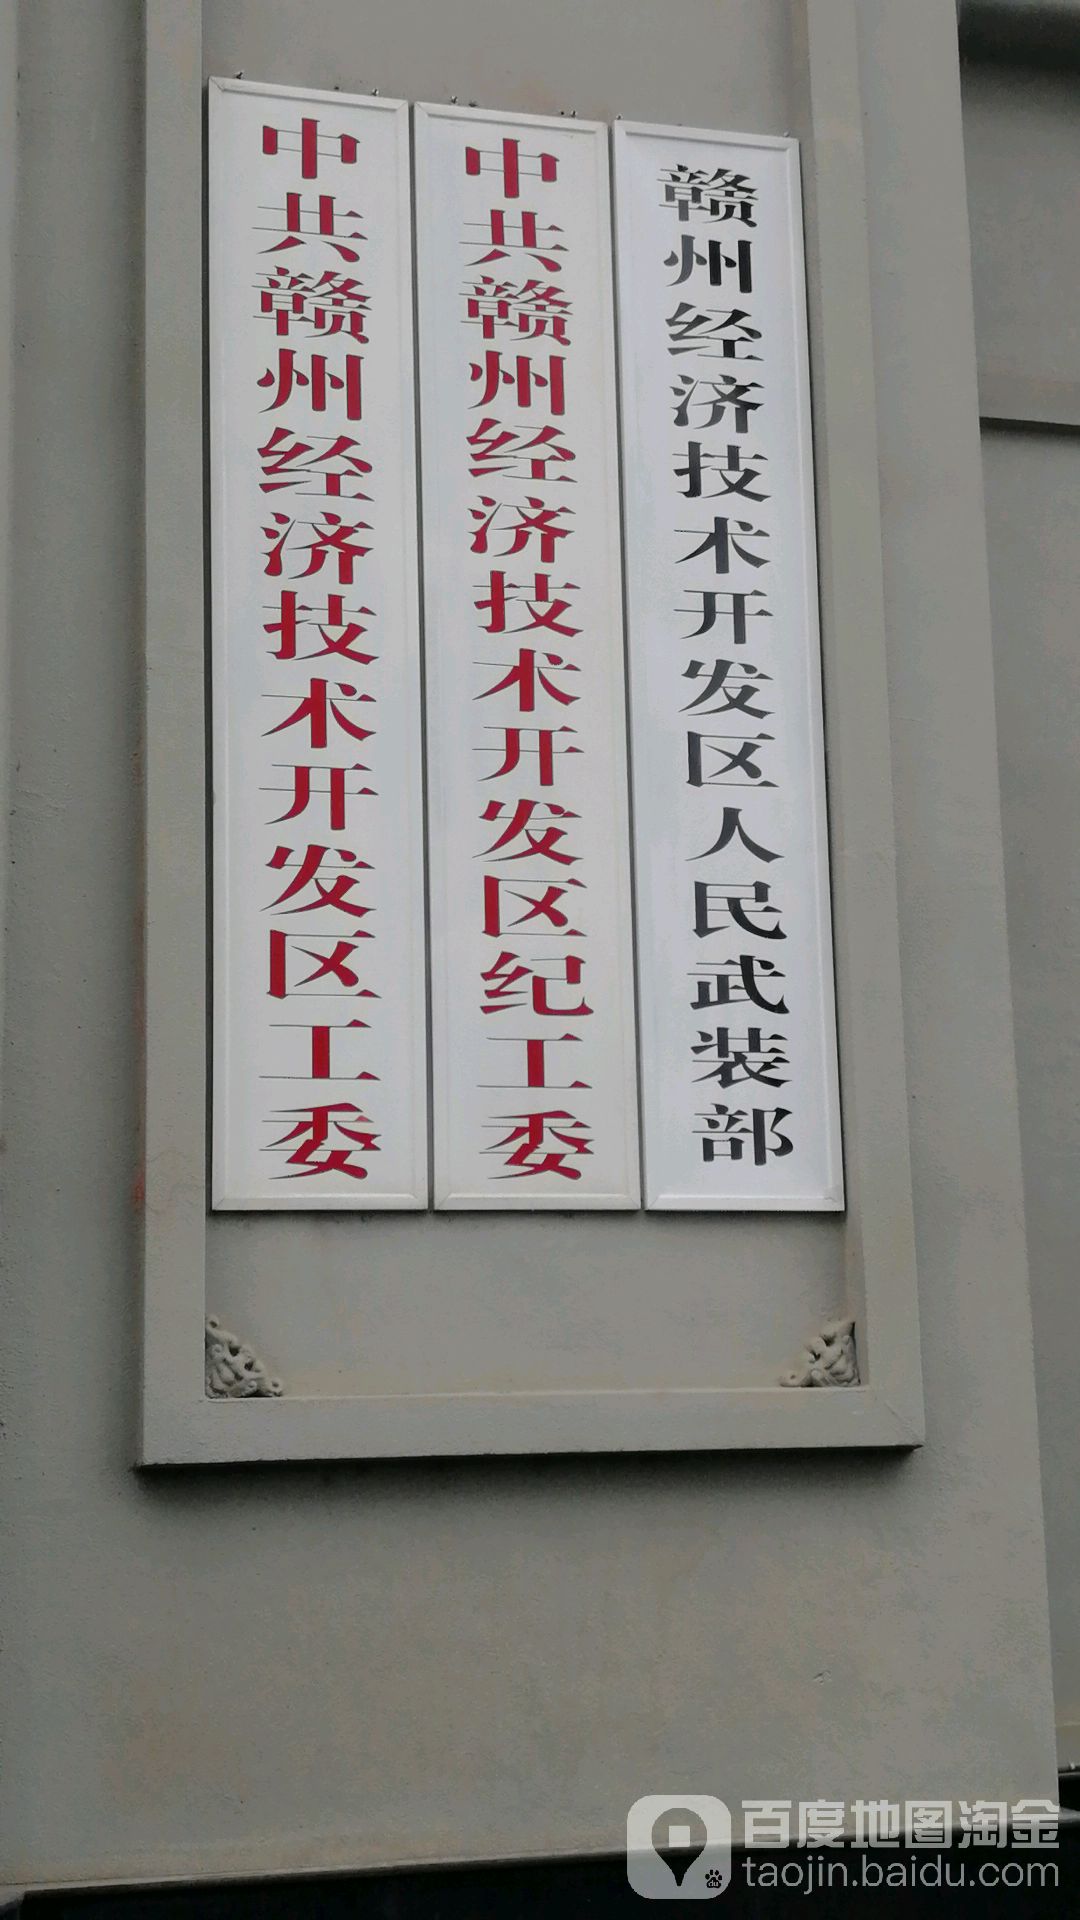 中共赣州经济技术开发区工委
中共赣州经济技术开发区纪工委
赣州经济技术开发区人民武装部
百度地图淘金
taojin.baidu.com